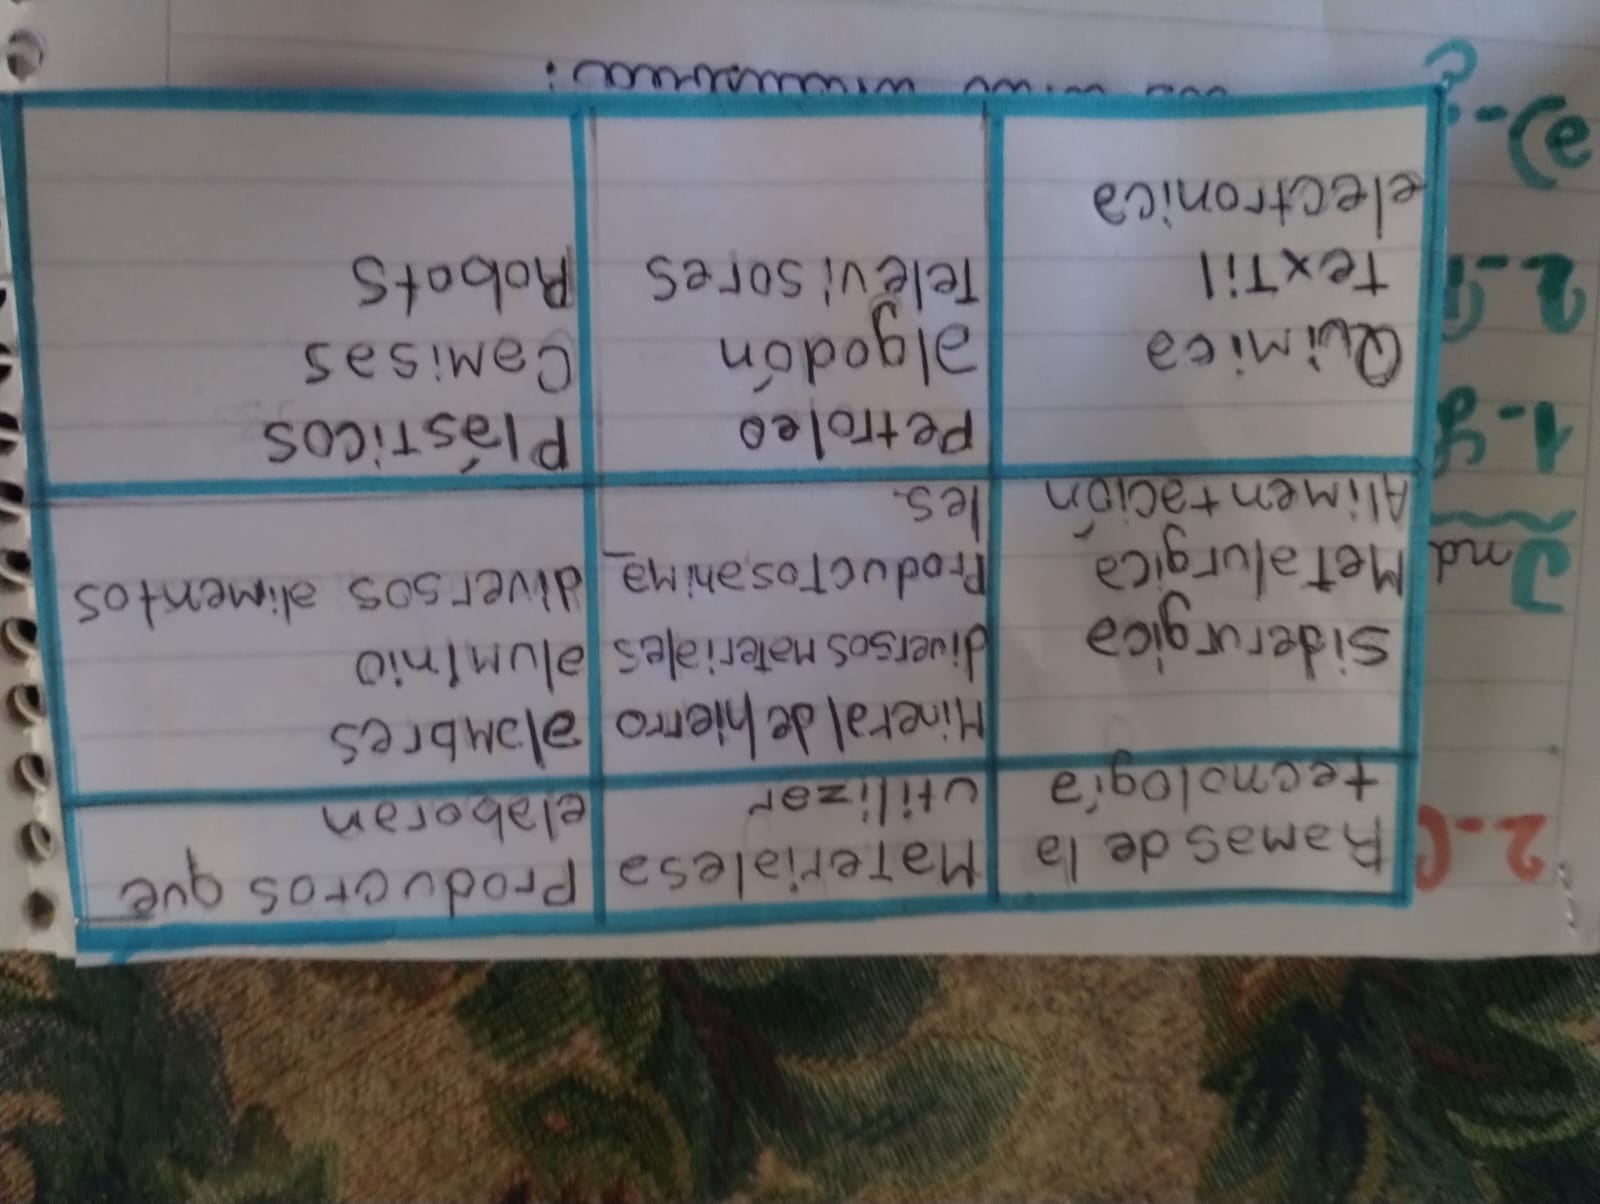 Ramas de la tecnología
Materiales a utilizar
Productos que elaboran
Siderurgica
Metalurgica
Alimentación
Mineral de hierro
diversos materiales
Productos anima_
les.
alambres
aluminio
diversos alimentos
Quimica
Textil
electronica
Petroleo
algodón
Televisores
Plásticos
Camisas
Robots
2-
1-
2-
a)-